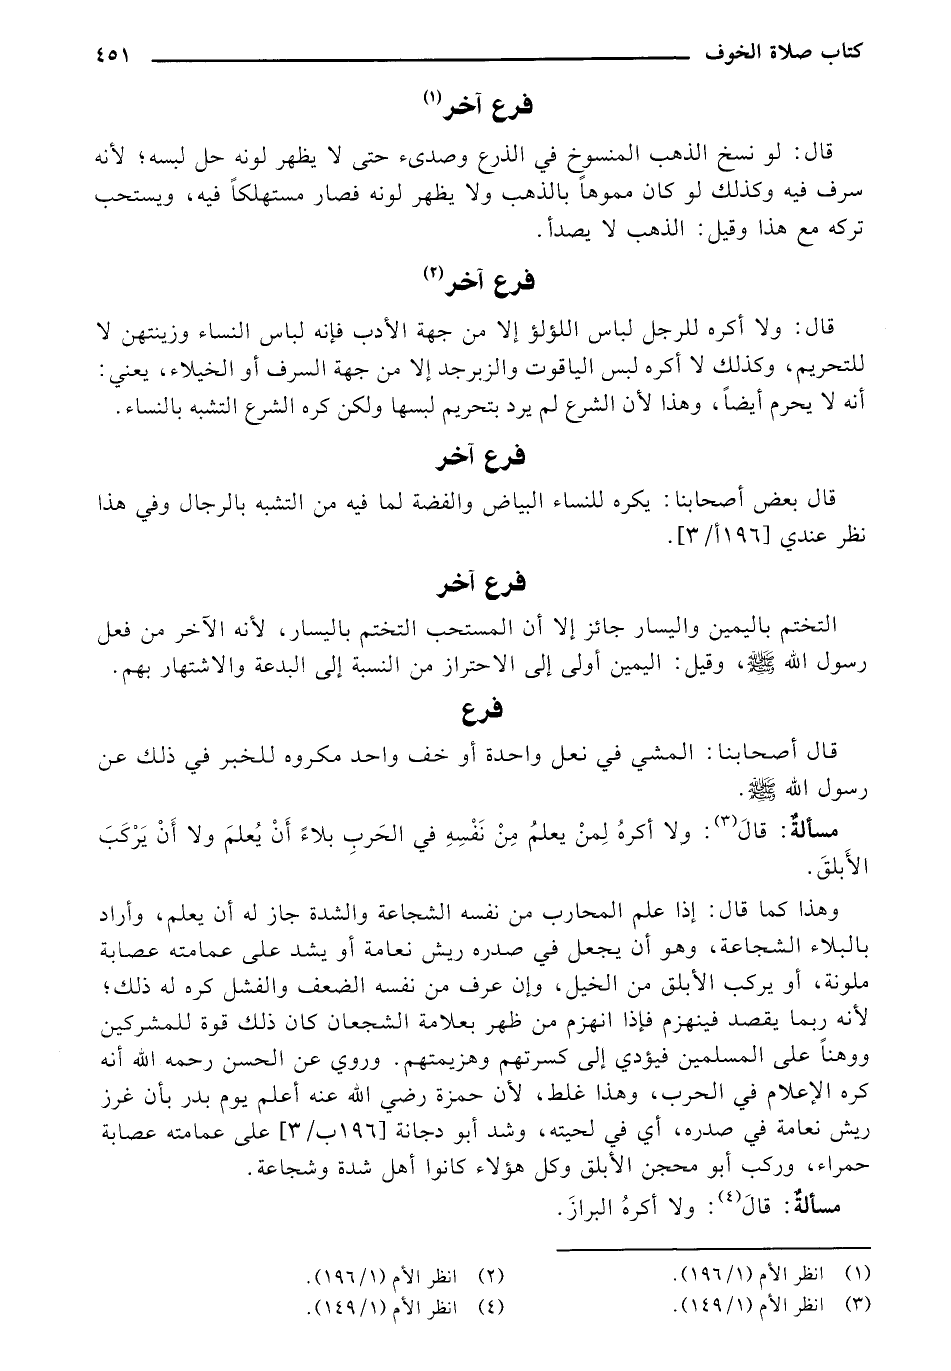 كتاب صلاة الخوف ٤٥١
فرع آخر(١)
قال: لو نسخ الذهب المنسوخ في الذرع وصدىء حتى لا يظهر لونه حل لبسه؛ لأنه
سرف فيه وكذلك لو كان مموهاً بالذهب ولا يظهر لونه فصار مستهلكاً فيه، ويستحب
تركه مع هذا وقيل: الذهب لا يصدأ.
فرع آخر(٢)
قال: ولا أكره للرجل لباس اللؤلؤ إلا من جهة الأدب فإنه لباس النساء وزينتهن لا
للتحريم، وكذلك لا أكره لبس الياقوت والزبرجد إلا من جهة السرف أو الخيلاء، يعني:
أنه لا يحرم أيضاً، وهذا لأن الشرع لم يرد بتحريم لبسها ولكن كره الشرع التشبه بالنساء.
فرع آخر
قال بعض أصحابنا: يكره للنساء البياض والفضة لما فيه من التشبه بالرجال وفي هذا
نظر عندي [١٩٦أ/ ٣].
فرع آخر
التختم باليمين واليسار جائز إلا أن المستحب التختم باليسار، لأنه الآخر من فعل
رسول الله ﷺ، وقيل: اليمين أولى إلى الاحتراز من النسبة إلى البدعة والاشتهار بهم.
فرع
قال أصحابنا: المشي في نعل واحدة أو خف واحد مكروه للخبر في ذلك عن
رسول الله ﷺ.
مسألةٌ: قالَ(٣): ولا أكرهُ لِمنْ يعلمُ مِنْ نَفْسِهِ في الحَربِ بلاءً أنْ يُعلمَ ولا أنْ يَرْكَبَ
الأَبلقَ.
وهذا كما قال: إذا علم المحارب من نفسه الشجاعة والشدة جاز له أن يعلم، وأراد
بالبلاء الشجاعة، وهو أن يجعل في صدره ريش نعامة أو يشد على عمامته عصابة
ملونة، أو يركب الأبلق من الخيل، وإن عرف من نفسه الضعف والفشل كره له ذلك؛
لأنه ربما يقصد فينهزم فإذا انهزم من ظهر بعلامة الشجعان كان ذلك قوة للمشركين
ووهناً على المسلمين فيؤدي إلى كسرتهم وهزيمتهم. وروي عن الحسن رحمه الله أنه
كره الإعلام في الحرب، وهذا غلط، لأن حمزة رضي الله عنه أعلم يوم بدر بأن غرز
ريش نعامة في صدره، أي في لحيته، وشد أبو دجانة [١٩٦ب/ ٣] على عمامته عصابة
حمراء، وركب أبو محجن الأبلق وكل هؤلاء كانوا أهل شدة وشجاعة.
مسألةٌ: قالَ(٤): ولا أكرهُ البرازَ.
(١) انظر الأم (١/ ١٩٦). (٢) انظر الأم (١/ ١٩٦).
(٣) انظر الأم (١/ ١٤٩). (٤) انظر الأم (١/ ١٤٩).